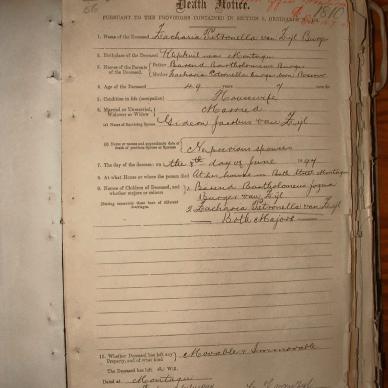 66
1810
Death Notice.
PURSUANT TO THE PROVISIONS CONTAINED IN SECTION 9, ORDINANCE
1. Name of the Deceased Zacharia Petronella van Zijl Burger
2. Birthplace of the Deceased near Montagu
3. Names of the Parents of the Deceased. Father Barend Bartholomeus Burger
Mother Zacharia Petronella Burger born
4. Age of the Deceased 49 years 7
5. Condition in life (occupation) Housewife
6. Married or Unmarried, Widower or Widow Married
(a) Name of Surviving Spouse Gideon Jacobus van Zijl
(b) Name or names and approximate date of death of previous Spouse or Spouses No previous spouses
7. The day of the decease: on the 8th day of June 97
8. At what House or where the person died At her house in Bath Street Montagu
9. Names of Children of Deceased, and whether majors or minors 1 Barend Bartholomeus
Burger van Zijl
2 Zacharia Petronella van Zijl
Both Majors
10. Whether Deceased has left any Property, and of what kind Movable & Immovable
The Deceased has left Will.
Dated at Montagu